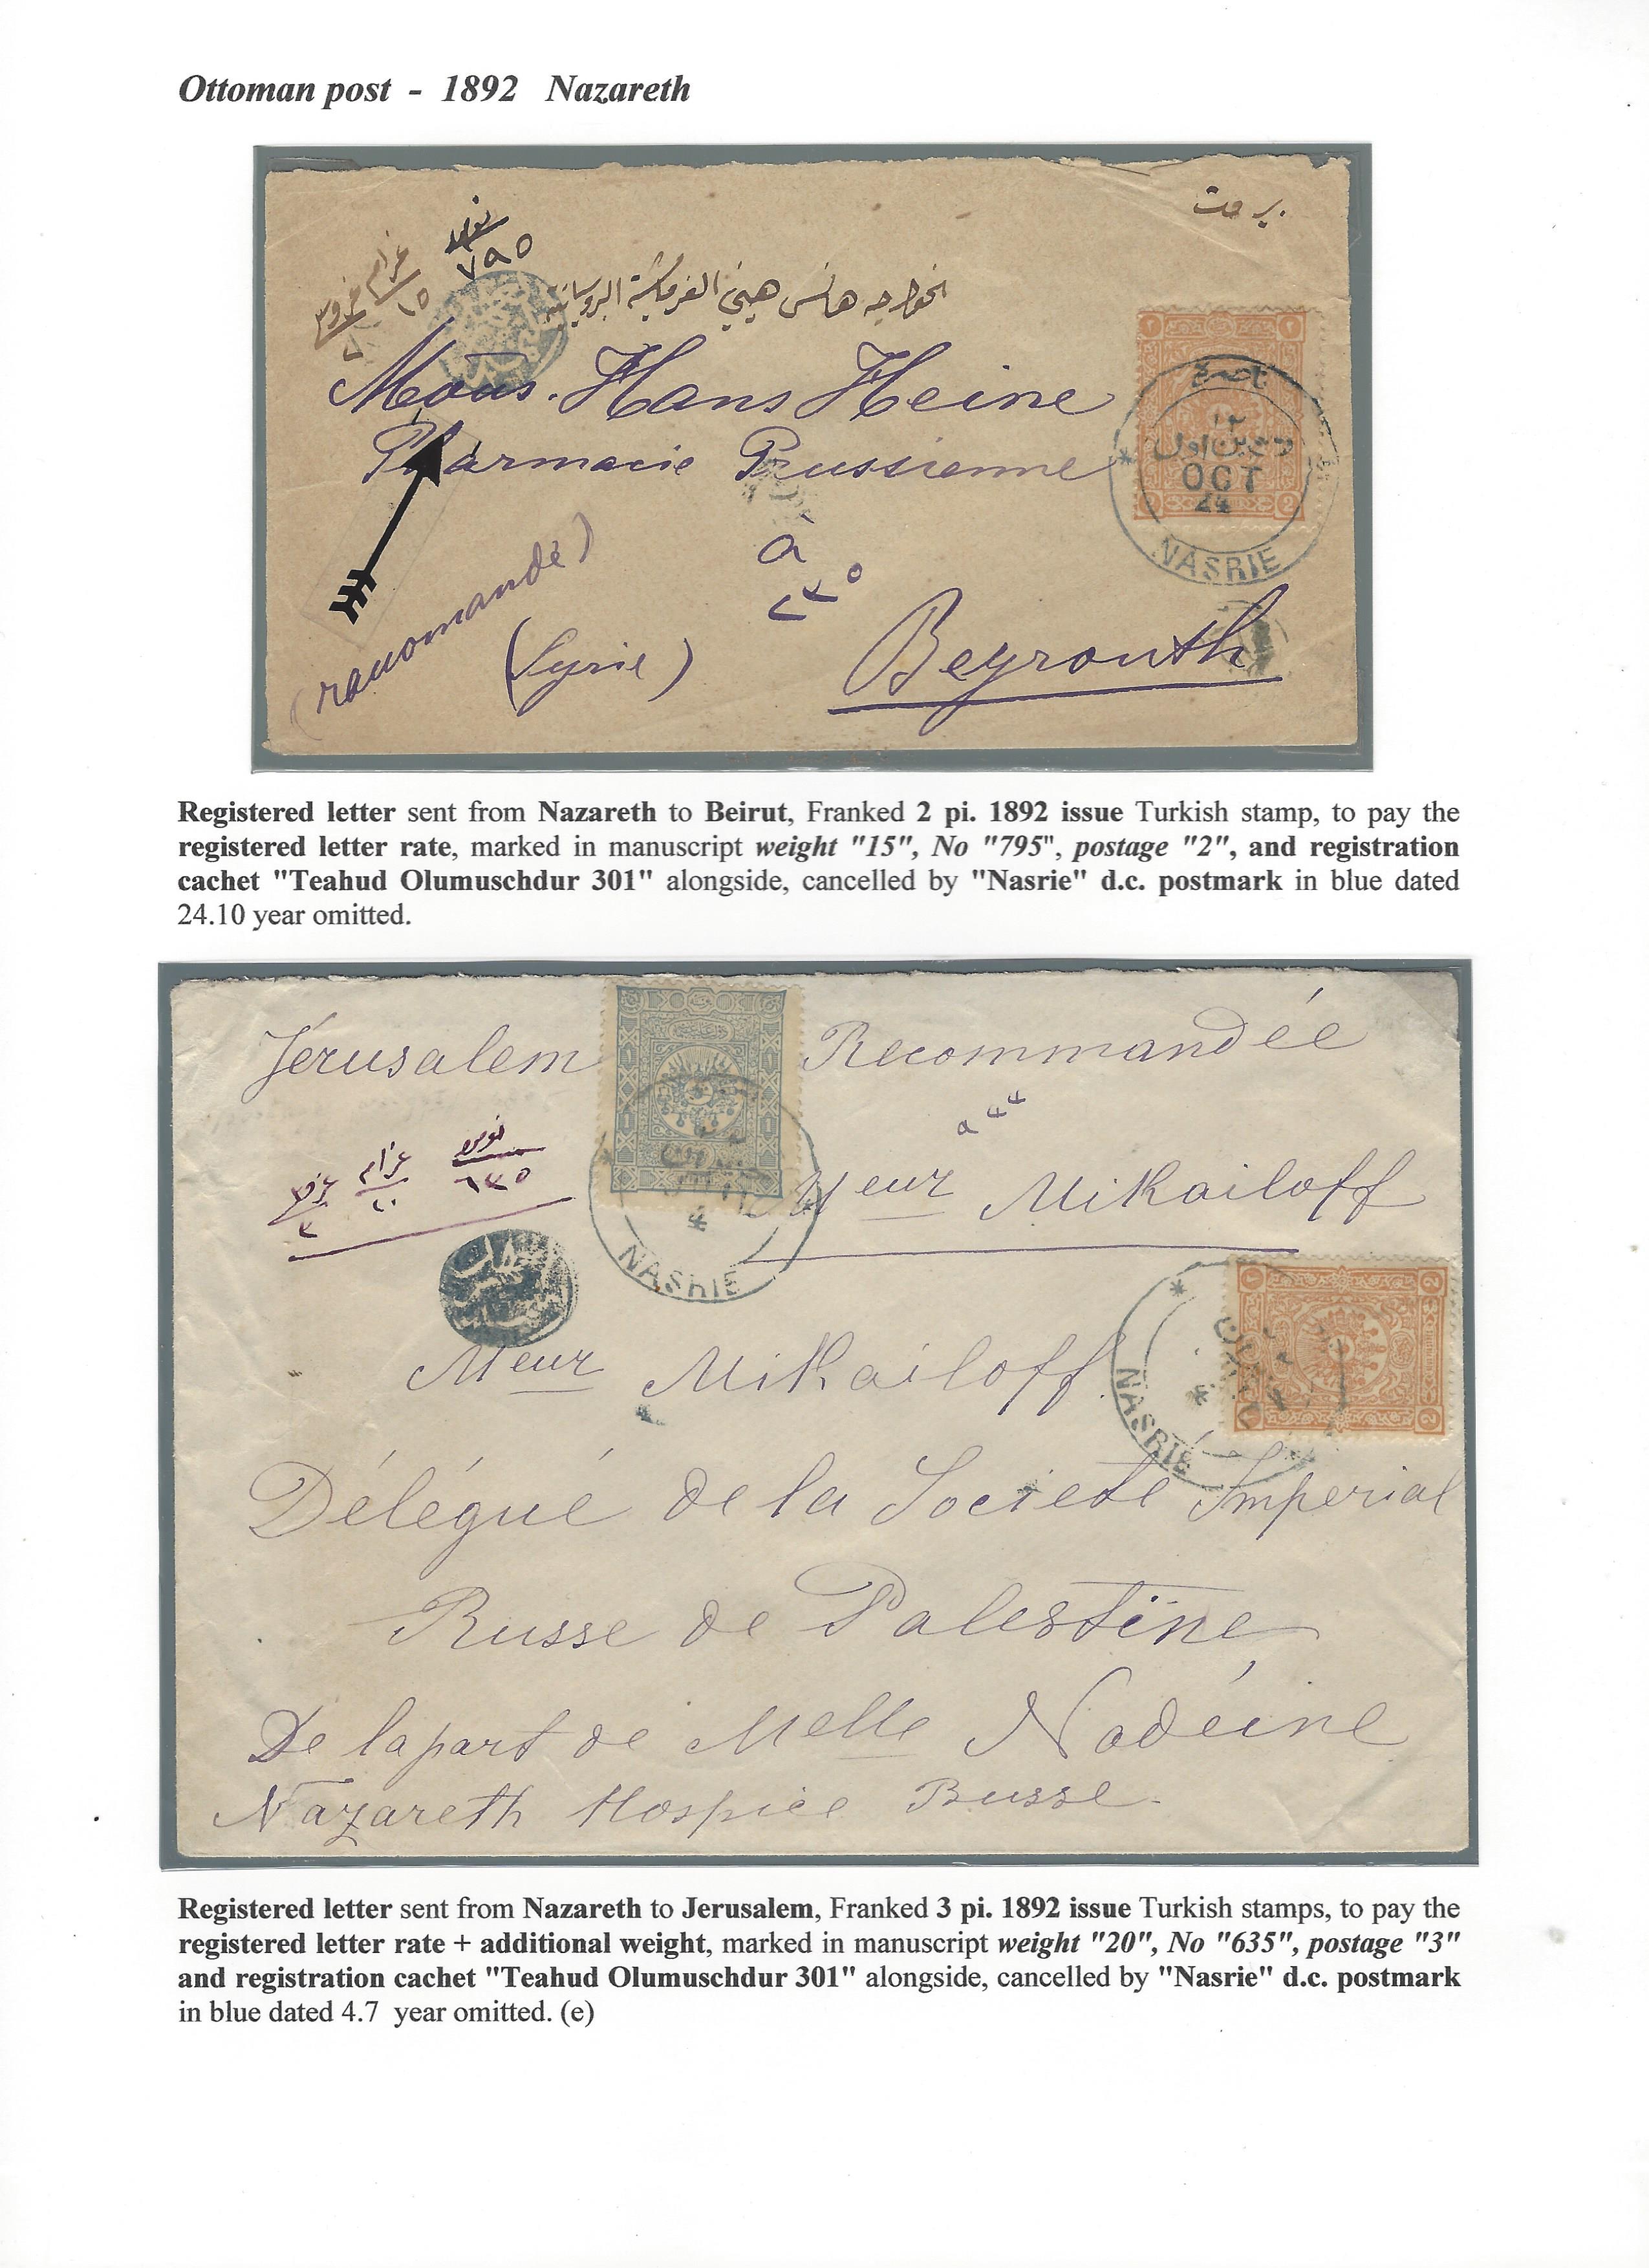 Ottoman post - 1892 Nazareth
بيروت
نومرو
٧٩٥
غرام
١٥
غروش
٢
الخواجه هانس هيني الفرمشية البروسيانيه
Mons. Hans Heine
Pharmacie Prussienne
à
٢٣٥
(recommandé)
(Syrie)
Beyrouth
١٢
تشرين اول
OCT
24
NASRIE
Registered letter sent from Nazareth to Beirut, Franked 2 pi. 1892 issue Turkish stamp, to pay the
registered letter rate, marked in manuscript weight "15", No "795", postage "2", and registration
cachet "Teahud Olumuschdur 301" alongside, cancelled by "Nasrie" d.c. postmark in blue dated
24.10 year omitted.
Jérusalem Recommandée
نومرو
٦٣٥
غرام
٢٠
غروش
٣
Meur Mikailoff
NASRIE
Meur Mikailoff
NASRIE
Délégué de la Societé Imperial
Russe de Palestine
De la part de Melle Nadéine
Nazareth Hospice Russe.
Registered letter sent from Nazareth to Jerusalem, Franked 3 pi. 1892 issue Turkish stamps, to pay the
registered letter rate + additional weight, marked in manuscript weight "20", No "635", postage "3"
and registration cachet "Teahud Olumuschdur 301" alongside, cancelled by "Nasrie" d.c. postmark
in blue dated 4.7 year omitted. (e)